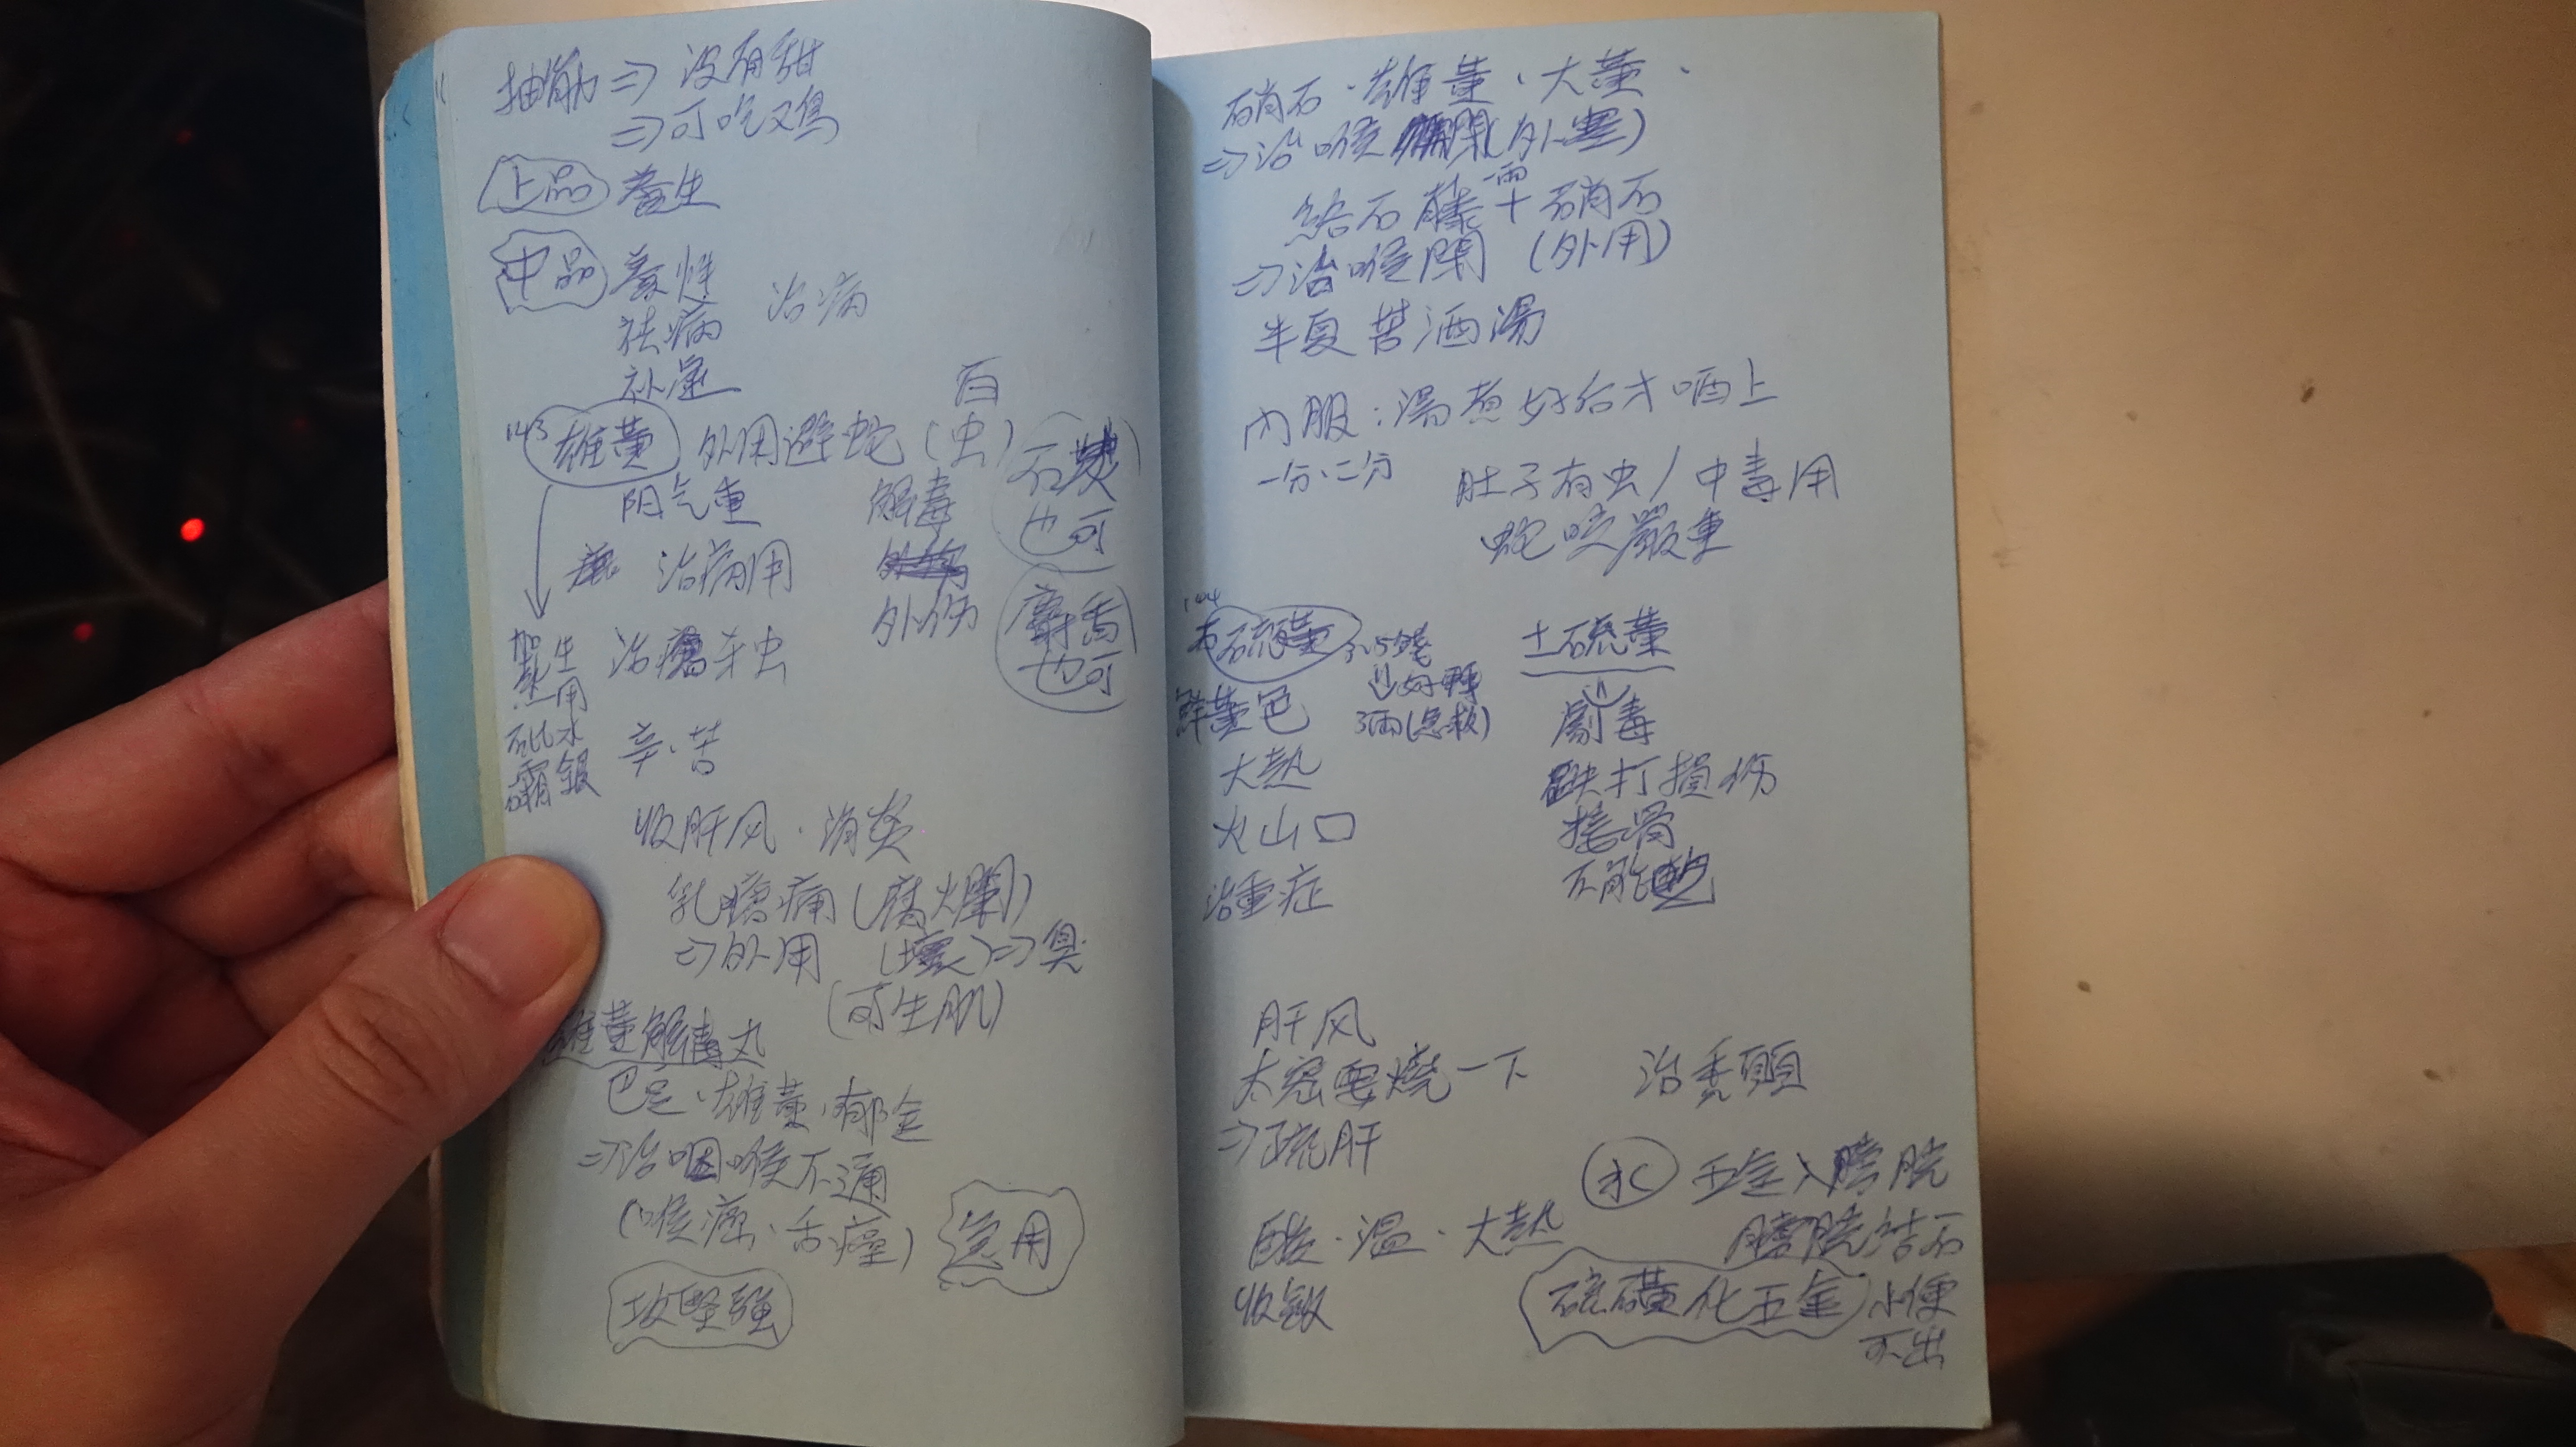 抽筋 => 没有甜
=> 可吃又鸟
上品 養生
中品 養性 治病
祛病
补
百
143 雄黄 外用避蛇(虫)
阴气重 解毒 也可
治病用
外伤 麝香也可
加熱 生用 治瘡杀虫
砒霜 水銀 辛、苦
收肝风、消炎
乳癌痛(腐爛)
=> 外用 (壞) => 臭
(可生肌)
雄黄解毒丸
巴豆、雄黄、郁金
=> 治咽喉不通
(喉癌、舌癌) 急用
攻堅強
硝石、雄黄、大黄、
=> 治喉 閉(外塞)
絡石藤 一兩 + 硝石
=> 治喉閉 (外用)
半夏苦酒湯
內服:湯煮好后才洒上
一分、二分 肚子有虫/中毒用
蛇咬嚴重
144
石硫黄 3、5錢 土硫黄
鮮黄色 3兩(急救) 劇毒
大熱 跌打損伤
火山口 接骨
治重症 不能吃
肝风
太密要燒一下 治禿頭
=> 疏肝
水 五金入膀胱
酸、温、大熱 膀胱结石
收敛 硫磺化五金 小便
不出